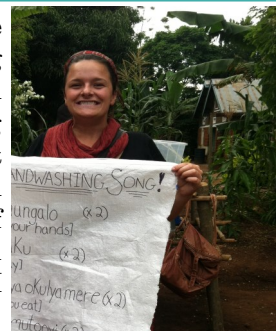 ANDWASHING SONG!
ungalo (x2)
our hands]
Ku (x2)
y]
a okulya mere (x2)
ou eat]